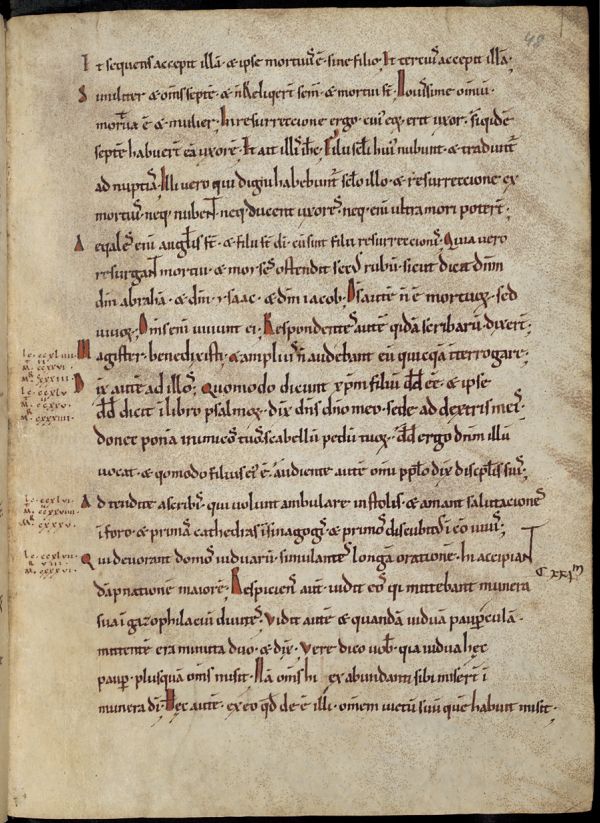 48
Et sequens accepit illā · & ipse mortuꝰ ē · sine filio · Et terciꝰ accepit illā ·
Similiter & om̄s septē · & n̄ reliqer̄t sem̄ · & mortui st̄ · Nouissime omiū ·
mortua ē & mulier ; In resurreccione ergo · cuiꝰ eoꝝ erit uxor · siqidē
septē habuer̄t eā uxorē · Et ait illiſ ih̄c ; Filii sc̄li huiꝰ nubunt · & tradunt̄
ad nuptiaſ · Illi uero qui digni habebunt̄ sc̄lo illo · & resurreccione ex
mortuiſ · neq; nubent neq; ducent uxoreſ · neq; enī ultra mori poter̄t ;
Aeqaleſ enī angl̄is st̄ · & filii st̄ dī · cū sint filii resurreccioniſ · Quia uero
resurgant mortui · & moyseſ ostendit sec̄ rubū · sicut dicit dn̄m
dm̄ abrahā · & dm̄ ysaac · & dm̄ iacob · Ds̄ autē n̄ ē mortuoꝝ · sed
uiuoꝝ · Om̄s enī uiuunt ei · Respondenteſ autē qidā scribarū · dixer̄t ;
Magister · benedixisti · & ampliuſ n̄ audebant eū quicqā īterrogare ;
Dix̄ autē ad illoſ ; Quomodo dicunt xp̄m filiū dd̄ ēē · & ipse
dd̄ dicit ī libro psalmoꝝ · dix̄ dn̄s dn̄o meo · sede ad dextris meiſ ·
donec ponā inimicoſ tuoſ scabellū pedū tuoꝝ · dd̄ ergo dn̄m illū
uocat · & qomodo filius eiꝰ ē · audiente autē omi pp̄lo dix̄ discipl̄is suiſ ·
Adtendite a scribiſ · qui uolunt ambulare in stolis · & amant salutacioneſ
ī foro · & primaſ cathedras ī sinagogiſ · & primoſ discubitꝰ ī cōuiuiiſ ;
Qui deuorant domoſ uiduarū · simulanteſ longā oratione · hi accipiant
dāpnatione maiorē · Respicienſ aut̄ uidit eoſ qi mittebant munera
sua ī gazophilaciū diuiteſ · Vidit autē & quandā uiduā pauperculā ·
mittentē era minuta duo · & dix̄ · Vere dico uob̄ · qia uidua hec
paup̄ · plusquā om̄s misit · Nā om̄s hi ex abundanti sibi miser̄t ī
munera dī · Hec autē · ex eo qd̄ deē illi · omem uictū suū quē habuit misit ·
lc · ccxliiii
M · ccxxvi ·
M · cxxxiii ·
lc · ccxlv
M · ccxxv ·
M · cxxxiiii ·
lc · ccxlvi ·
M · ccxxviiii ·
M · cxxxv ·
lc · ccxlvii ·
M · cxxxvi ·
C xxim